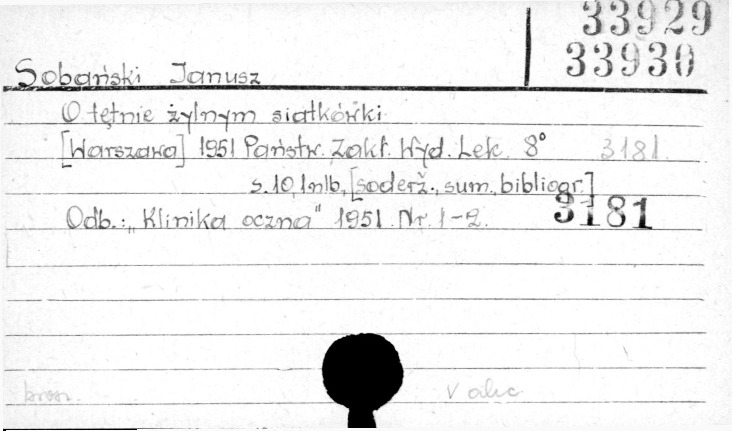 33929
33930
Sobański Janusz
O tętnie żylnym siatkówki
[Warszawa] 1951 Państw. Zakł. Wyd. Lek. 8° 3181
s. 10, 1 nlb, [soderž., sum., bibliogr.]
Odb.: „Klinika oczna" 1951. Nr. 1-2. 3181
brosz. V alic